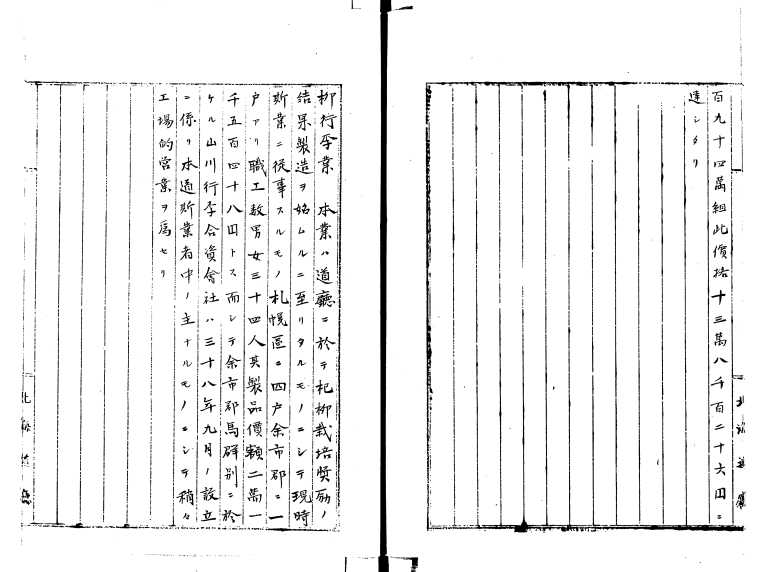 百九十四萬組此價格十三萬八千百二十六円ニ
達シタリ
北海道廳
柳行李業 本業ハ道廳ニ於テ杞柳栽培奨励ノ
結果製造ヲ始ムルニ至リタルモノニシテ現時
斯業ニ従事スルモノ札幌區ニ四戸余市郡ニ一
戸アリ職工数男女三十四人其製品價額二萬一
千五百四十八円トス而シテ余市郡馬群別ニ於
ケル山川行李合資會社ハ三十八年九月ノ設立
ニ係リ本道斯業者中ノ主ナルモノニシテ稍々
工場的営業ヲ為セリ
北海道廳